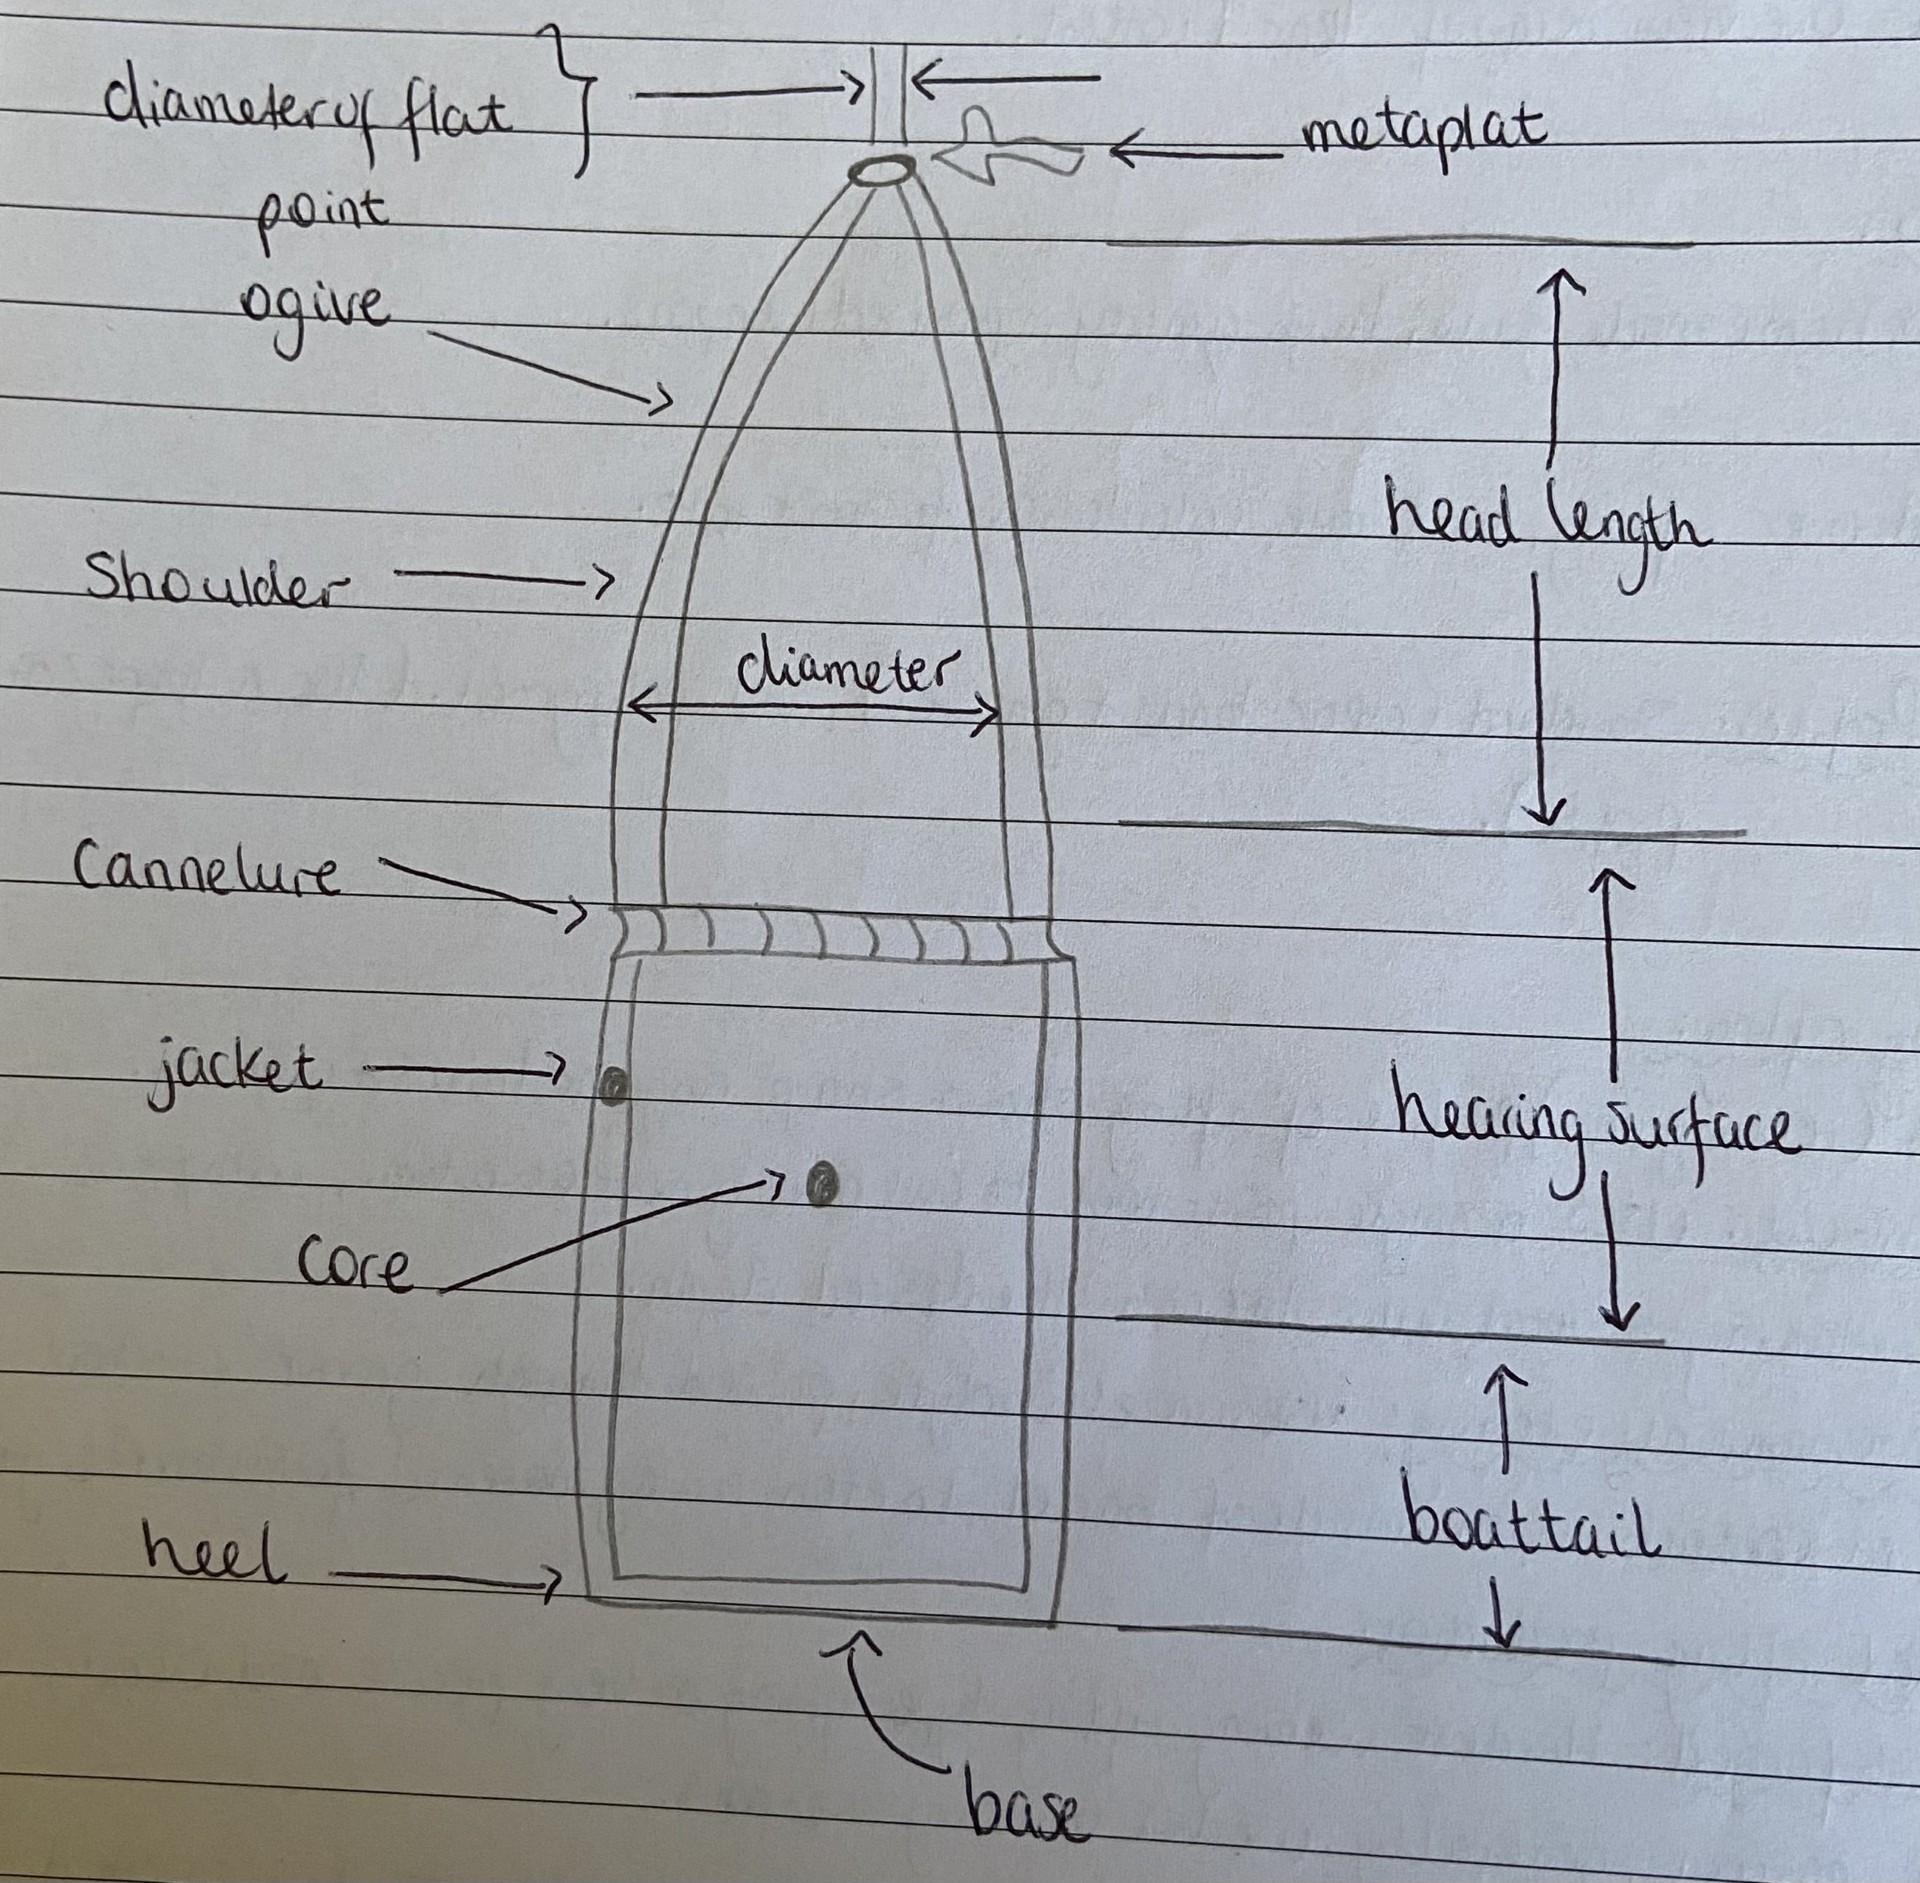 diameter of flat
point
metaplat
ogive
head length
Shoulder
diameter
Cannelure
jacket
hearing surface
core
boattail
heel
base